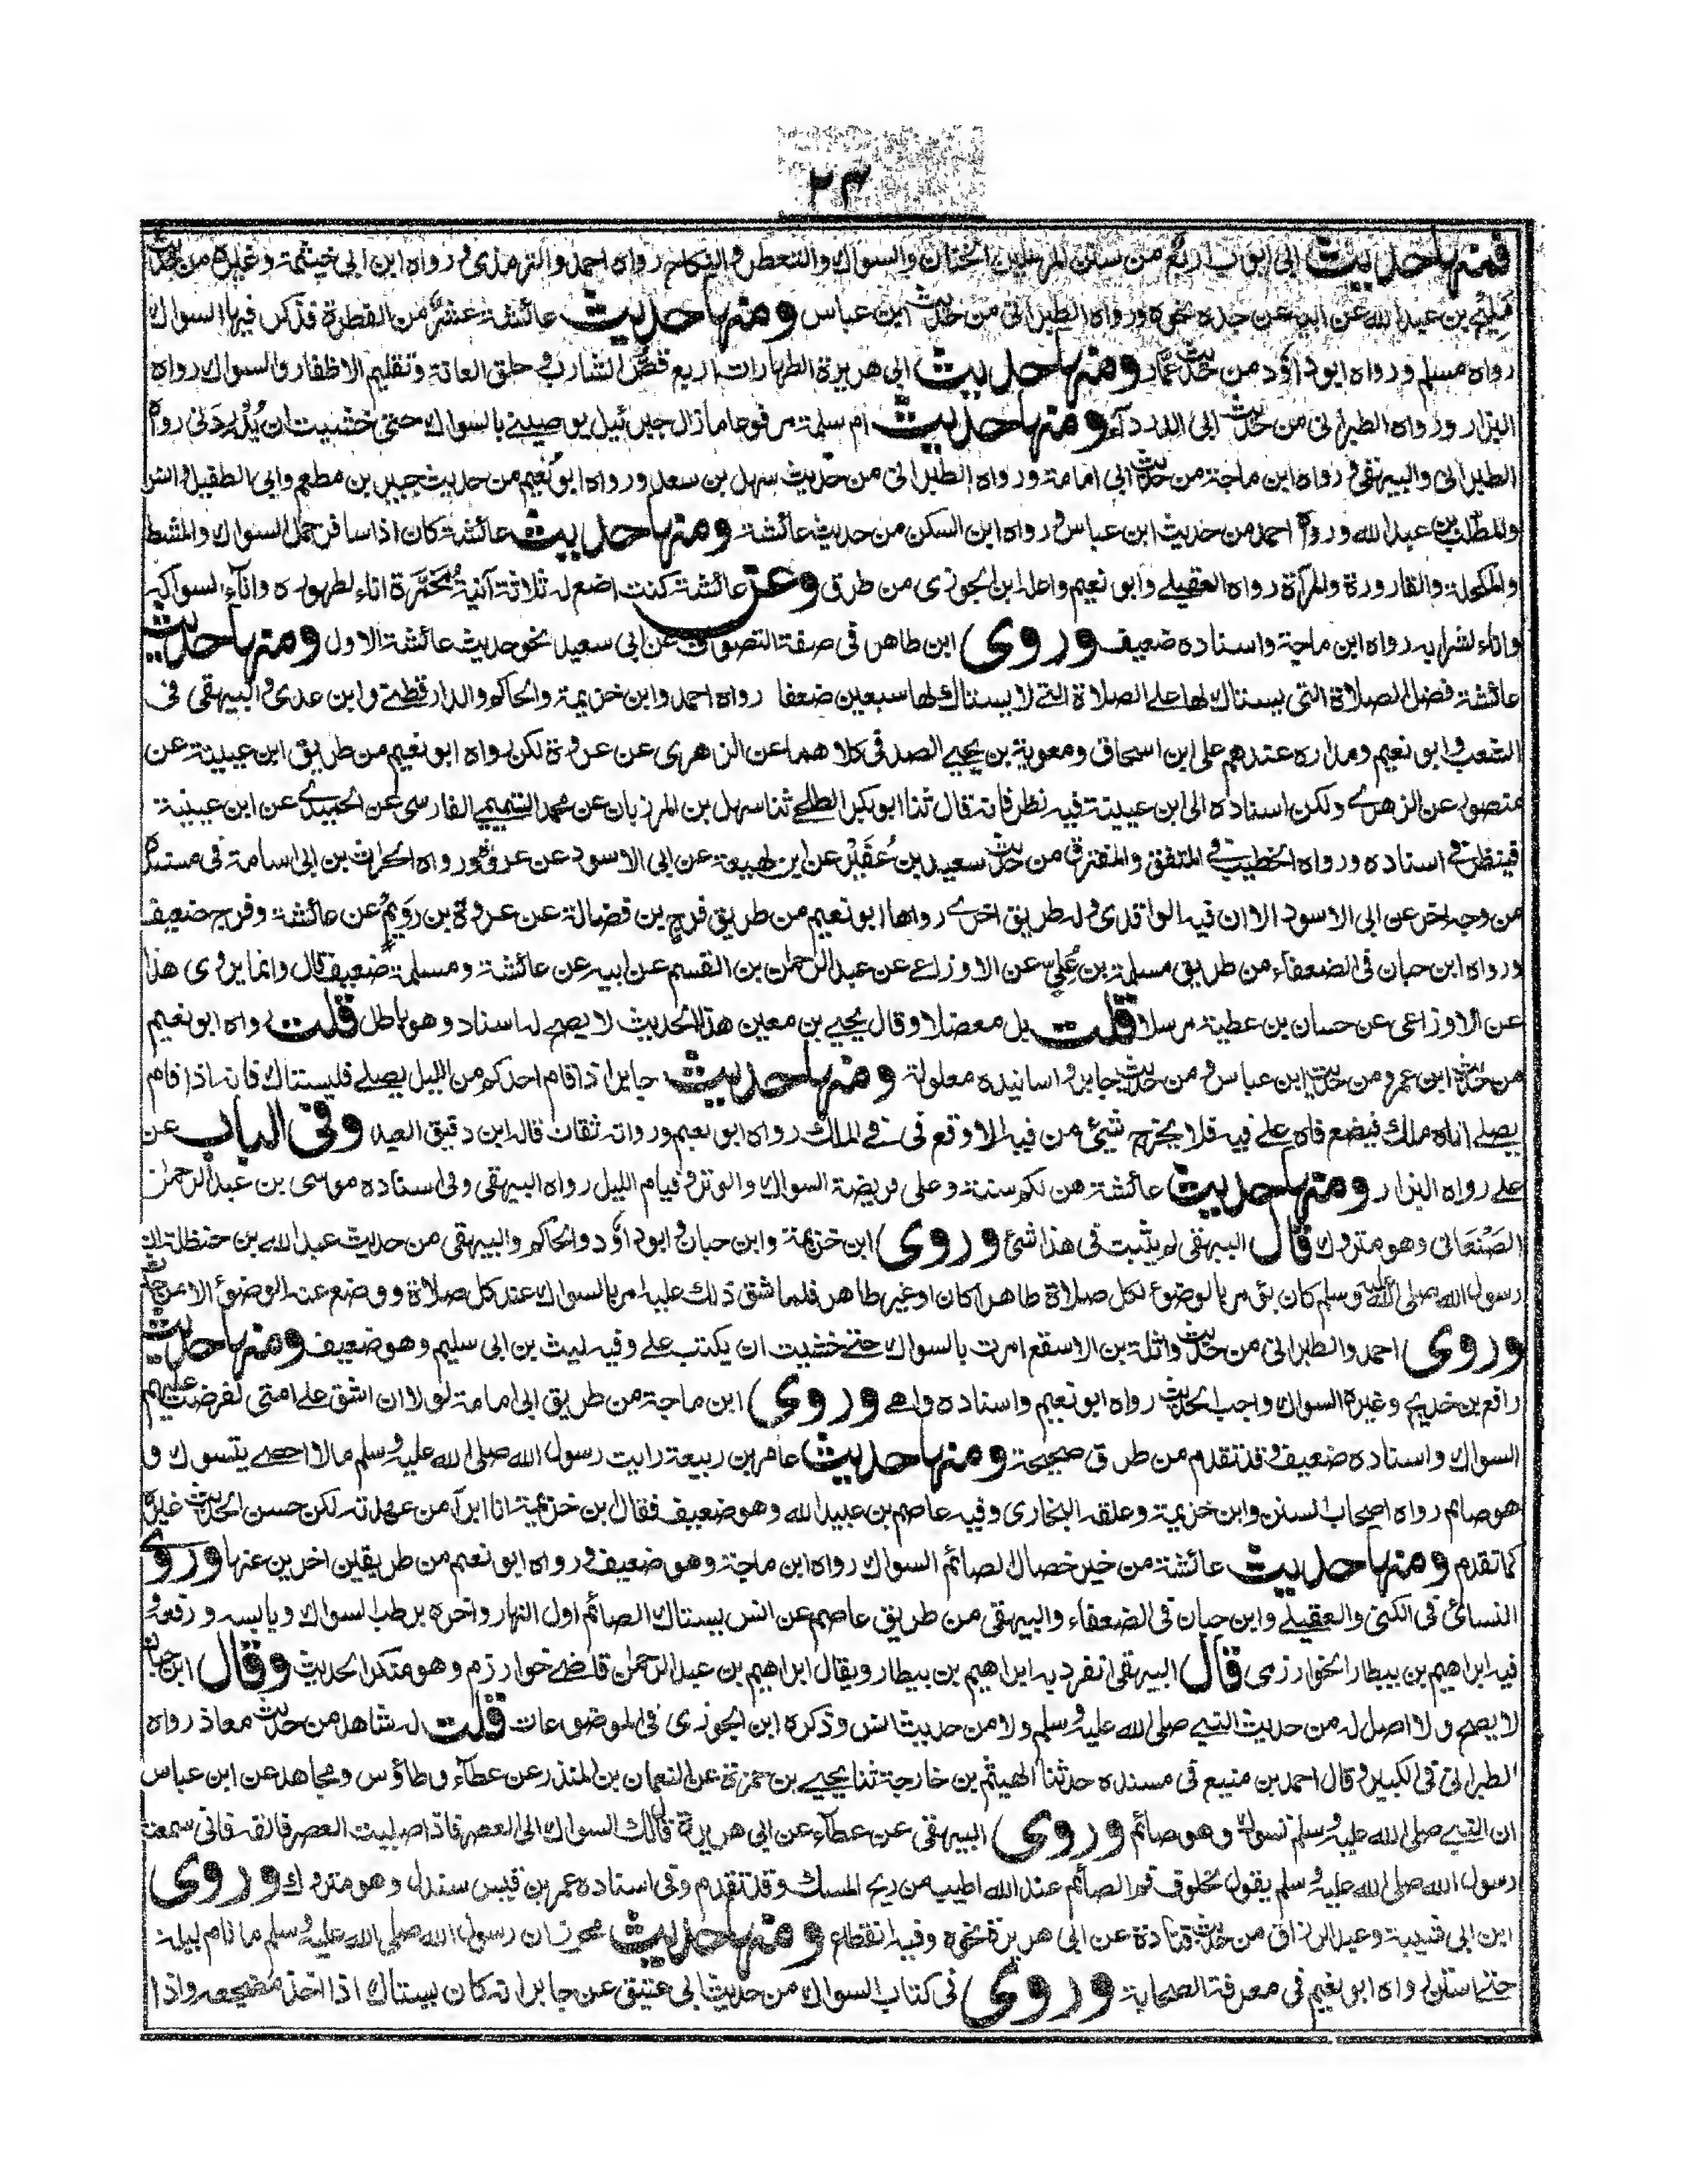 ٢٣
فمنها حديث ابى ايوب اربع من سنن المرسلين الختان والسواك والتعطر والنكاح رواه احمد والترمذى ورواه ابن ابى خيثمة وغيره من حديث
مليح بن عبد الله عن ابيه عن جده نحوه ورواه الطبرانى من حديث ابن عباس ومنها حديث عائشة عشر من الفطرة فذكر فيها السواك
رواه مسلم ورواه ابو داؤد من حديث عمار ومنها حديث ابى هريرة الطهارات اربع قص الشارب وحلق العانة وتقليم الاظفار والسواك رواه
البزار ورواه الطبرانى من حديث ابى الدرداء ومنها حديث ام سلمة مرفوعا مازال جبرئيل يوصينى بالسواك حتى خشيت ان يُدْرِدَنى رواه
الطبرانى والبيهقى ورواه ابن ماجة من حديث ابى امامة ورواه الطبرانى من حديث سهل بن سعد ورواه ابو نعيم من حديث جبير بن مطعم وابى الطفيل وانس
والمطلب بن عبد الله ورواه احمد من حديث ابن عباس ورواه ابن السكن من حديث عائشة ومنها حديث عائشة كان اذا سافر حمل السواك والمشط
والمكحلة والقارورة والمرآة رواه العقيلے وابو نعيم واعله ابن الجوزى من طرق وعن عائشة كنت اضع له ثلاثة آنية مُخَمَّرَة اناء لطهوره واناء لسواكه
واناء لشرابه رواه ابن ماجة واسناده ضعيف وروى ابن طاهر فى صفة التصوف عن ابى سعيد نحو حديث عائشة الاول ومنها حديث
عائشة فضل الصلاة التى يستاك لها على الصلاة التے لا يستاك لها سبعين ضعفا رواه احمد وابن خزيمة والحاكم والدارقطنے وابن عدى والبيهقى فى
الشعب وابو نعيم ومداره عندهم على ابن اسحاق ومعوية بن يحيے الصدفى كلاهما عن الزهرى عن عروة لكن رواه ابو نعيم من طريق ابن عيينة عن
منصور عن الزهرے ولكن اسناده الى ابن عيينة فيه نظر فانه قال ثنا ابو بكر الطلحے ثنا سهل بن المرزبان عن محمد التميمى الفارسى عن الحميدے عن ابن عيينة
فينظر فى اسناده ورواه الخطيب فى المتفق والمفترق من حديث سعيد بن عُفَيْر عن ابن لهيعة عن ابى الاسود عن عروة ورواه الحارث بن ابى اسامة فى مسنده
من وجه اخر عن ابى الاسود الا ان فيه الواقدى وله طريق اخرے رواها ابو نعيم من طريق فرج بن فضالة عن عروة بن رويم عن عائشة وفرج ضعيف
ورواه ابن حبان فى الضعفاء من طريق مسلمة بن عُلى عن الاوزاعے عن عبد الرحمن بن القسم عن ابيه عن عائشة ومسلمة ضعيف قال وانما يروى هذا
عن الاوزاعى عن حسان بن عطية مرسلا قلت بل معضلا وقال يحيے بن معين هذا الحديث لا يصح له اسناد وهو باطل قلت رواه ابو نعيم
من حديث ابن عمر ومن حديث ابن عباس ومن حديث جابر واسانيده معلولة ومنها حديث جابر اذا قام احدكم من الليل يصلے فليستاك فانه اذا قام
يصلے اتاه ملك فيضع فاه علے فيه فلا يخرج شئ من فيه الا وقع فى فى الملك رواه ابو نعيم ورواته ثقات قاله ابن دقيق العيد وفى الباب عن
علے رواه البزار ومنها حديث عائشة هن لكم سنة وعلى فريضة السواك والوتر وقيام الليل رواه البيهقى وفى اسناده موسى بن عبد الرحمن
الصَنْعَانى وهو متروك قال البيهقى لم يثبت فى هذا شئ وروى ابن خزيمة وابن حبان وابو داؤد والحاكم والبيهقى من حديث عبد الله بن حنظلة ان
رسول الله صلى الله عليه وسلم كان يؤمر بالوضوء لكل صلاة طاهرا كان او غير طاهر فلما شق ذلك عليه امر بالسواك عند كل صلاة ووضع عنه الوضوء الا من حدث
وروى احمد والطبرانى من حديث واثلة بن الاسقع امرت بالسواك حتے خشيت ان يكتب علے وفيه ليث بن ابى سليم وهو ضعيف ومنها حديث
رافع بن خديج وغيره السواك واجب الحديث رواه ابو نعيم واسناده واهے وروى ابن ماجة من طريق ابى امامة لولا ان اشق على امتى لفرضت عليهم
السواك واسناده ضعيف وقد تقدم من طرق صحيحة ومنها حديث عامر بن ربيعة رايت رسول الله صلى الله عليه وسلم مالا احصے يتسوك و
هو صائم رواه اصحاب السنن وابن خزيمة وعلقه البخارى وفيه عاصم بن عبيد الله وهو ضعيف فقال ابن خزيمة انا ابرأ من عهدته لكن حسن الحديث غيره
كما تقدم ومنها حديث عائشة من خير خصال الصائم السواك رواه ابن ماجة وهو ضعيف ورواه ابو نعيم من طريقين اخرين عنها وروى
النسائى فى الكنى والعقيلے وابن حبان فى الضعفاء والبيهقى من طريق عاصم عن انس يستاك الصائم اول النهار واخره برطب السواك ويابسه ورفعه و
فيه ابراهيم بن بيطار الخوارزمى قال البيهقى انفرد به ابراهيم بن بيطار ويقال ابراهيم بن عبد الرحمن قاضے خوارزم وهو منكر الحديث وقال ابن حبان
لا يصح ولا اصل له من حديث النبے صلى الله عليه وسلم ولا من حديث انس وذكره ابن الجوزى فى الموضوعات قلت له شاهد من حديث معاذ رواه
الطبرانى فى الكبير وقال احمد بن منيع فى مسنده حدثنا الهيثم بن خارجة ثنا يحيے بن حمزة عن النعمان بن المنذر عن عطاء وطاؤس ومجاهد عن ابن عباس
ان النبے صلى الله عليه وسلم تسوك وهو صائم وروى البيهقى عن عطاء عن ابى هريرة قال لك السواك الى العصر فاذا صليت العصر فالقه فانى سمعت
رسول الله صلى الله عليه وسلم يقول لخلوف فم الصائم عند الله اطيب من ريح المسك وقد تقدم وفى اسناده عمر بن قيس سندل وهو متروك وروى
ابن ابى شيبة وعبد الرزاق من حديث قتادة عن ابى هريرة نحوه وفيه انقطاع ومنها حديث محرز ان رسول الله صلى الله عليه وسلم ما نام ليلة
حتے استن رواه ابو نعيم فى معرفة الصحابة وروى فى كتاب السواك من حديث ابى عتيق عن جابر انه كان يستاك اذا اخذ مضجعه واذا